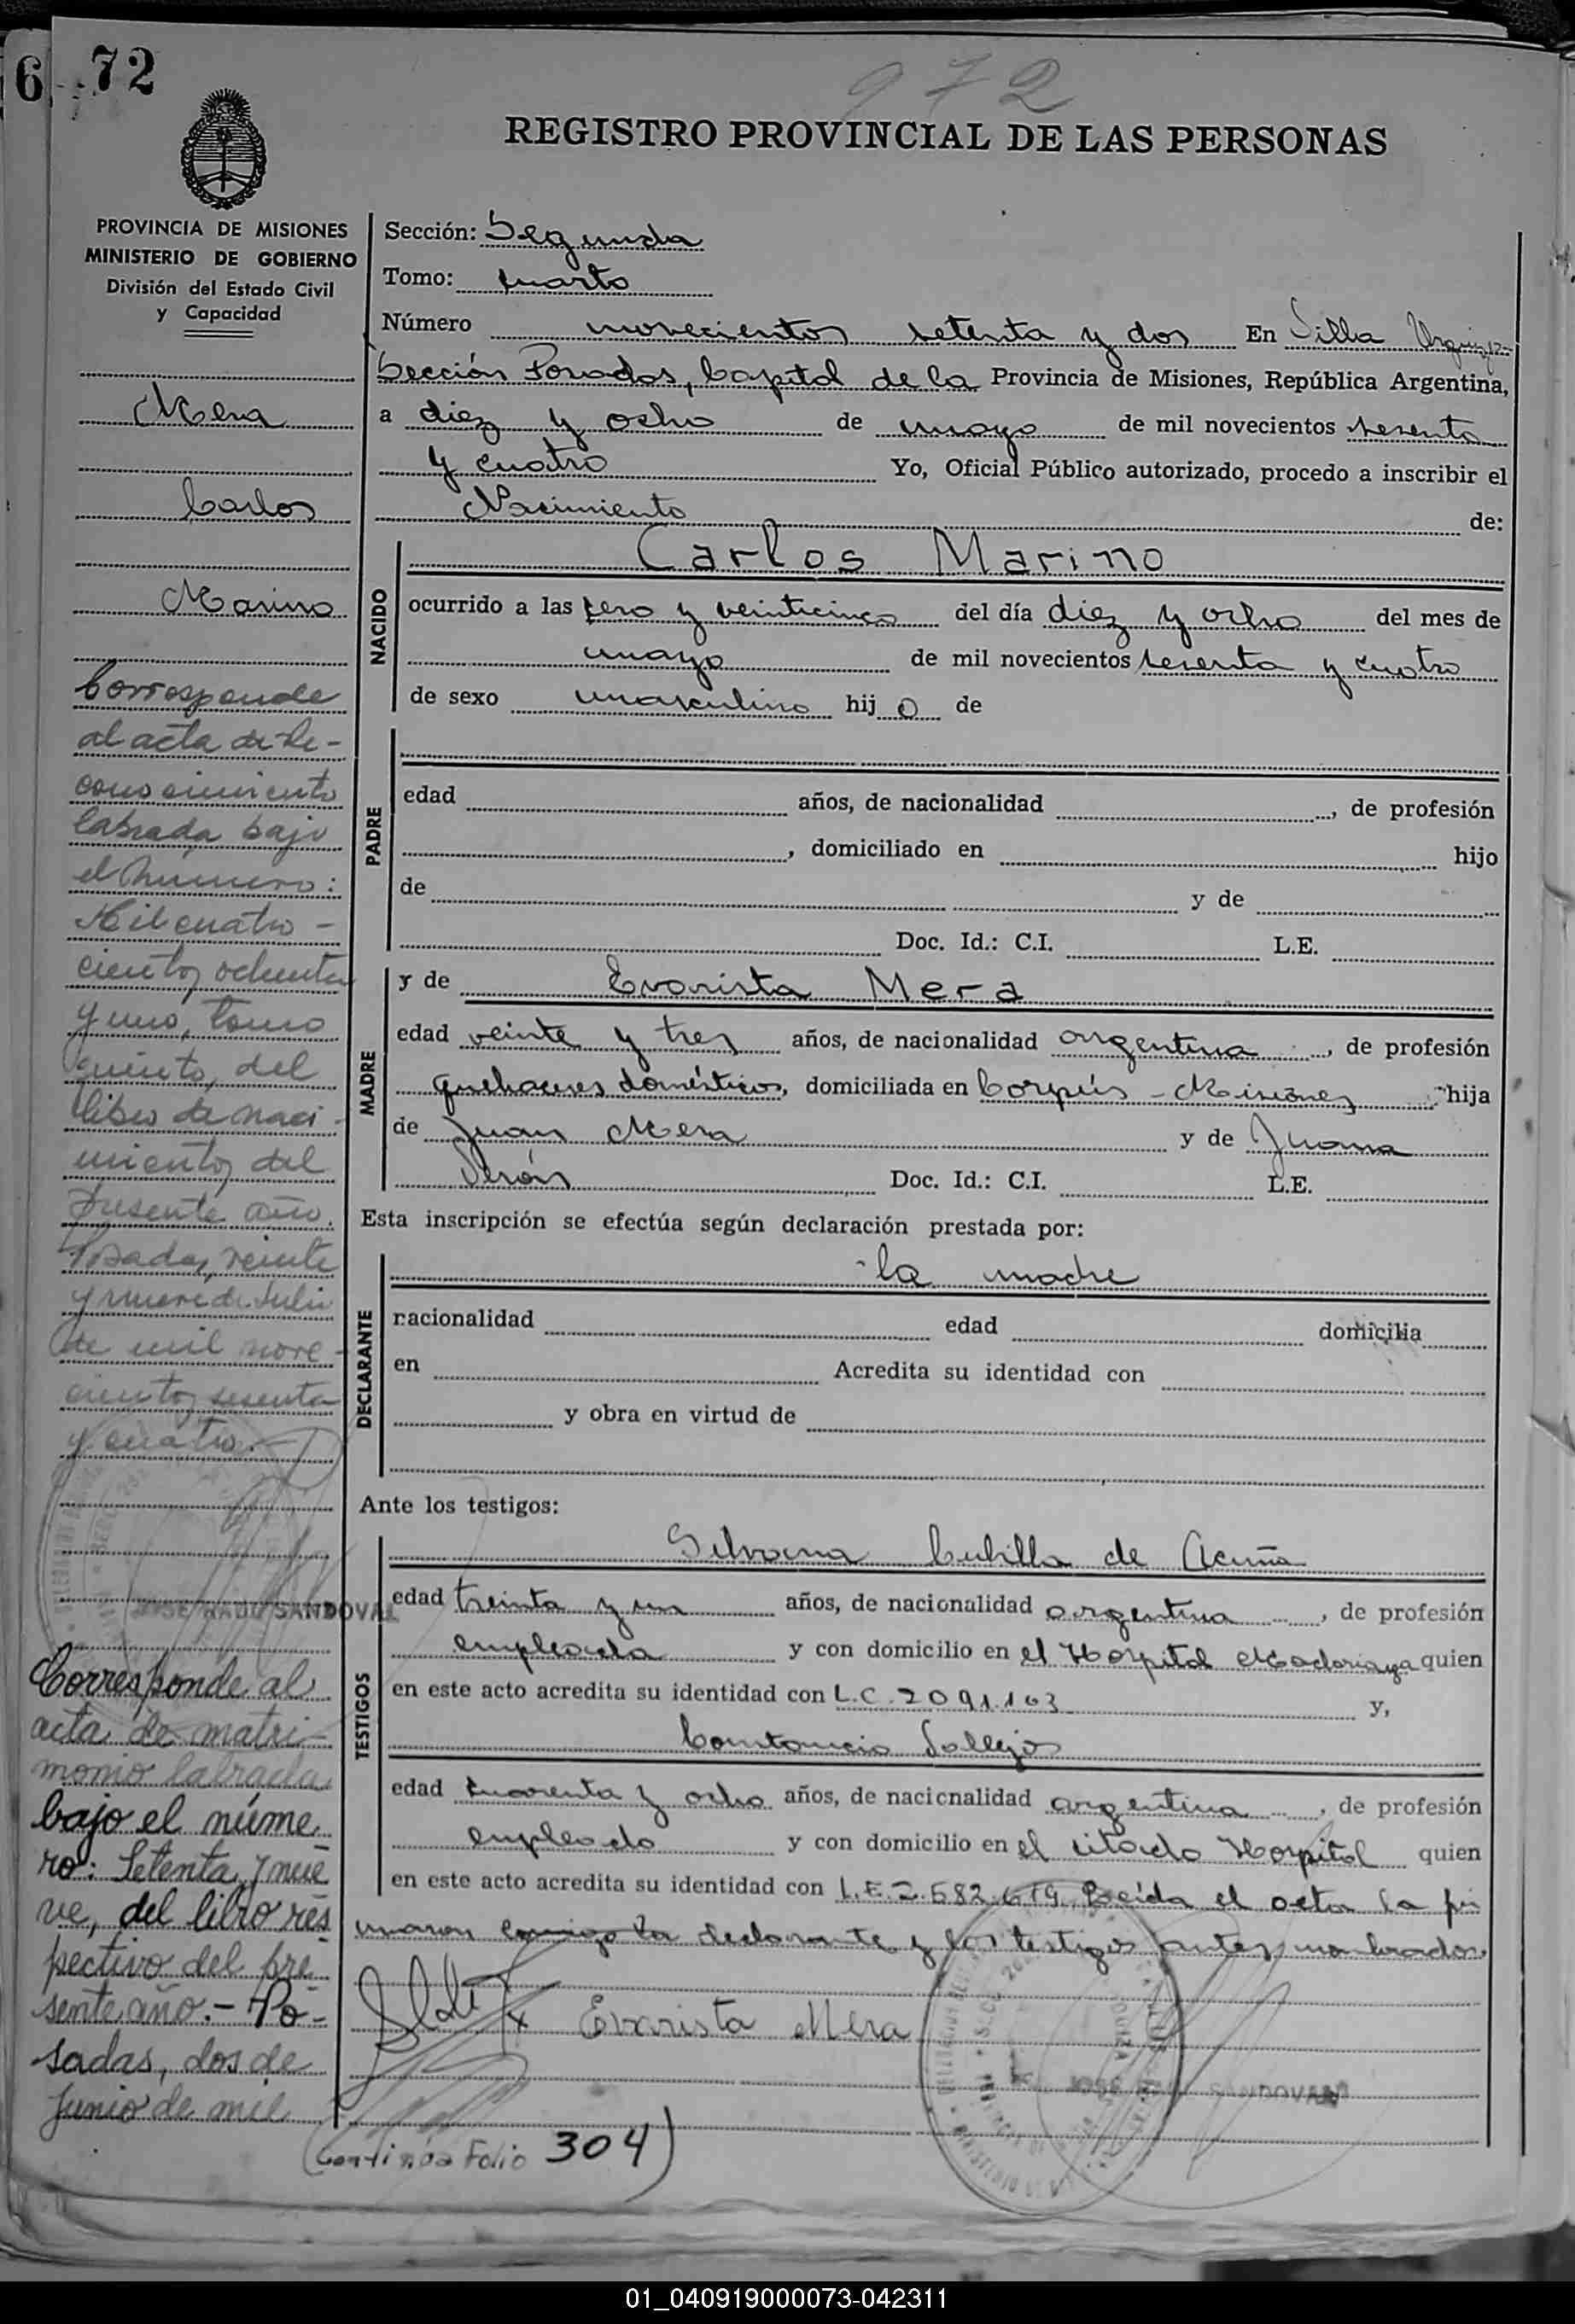 6 72
972
REGISTRO PROVINCIAL DE LAS PERSONAS
PROVINCIA DE MISIONES
MINISTERIO DE GOBIERNO
División del Estado Civil
y Capacidad
Mera
Carlos
Marino
Corresponde
al acta de Re-
conocimiento
labrada bajo
el número:
Mil cuatro-
cientos ochenta
y uno, tomo
quinto, del
libro de naci-
mientos del
presente año.
Posadas, veinte
y nueve de Julio
de mil nove-
cientos sesenta
y cuatro.-
JOSE RAUL SANDOVAL
Corresponde al
acta de matri-
monio labrada
bajo el núme
ro: Setenta y nue
ve, del libro res
pectivo del pre
sente año.- Po-
sadas, dos de
Junio de mil
Sección: Segunda
Tomo: cuarto
Número novecientos setenta y dos En Villa Urquiza
Sección Posadas, Capital de la Provincia de Misiones, República Argentina,
a diez y ocho de mayo de mil novecientos sesenta
y cuatro Yo, Oficial Público autorizado, procedo a inscribir el
Nacimiento de:
NACIDO
Carlos Marino
ocurrido a las cero y veinticinco del día diez y ocho del mes de
mayo de mil novecientos sesenta y cuatro
de sexo masculino hij o de
PADRE
edad años, de nacionalidad , de profesión
, domiciliado en hijo
de y de
Doc. Id.: C.I. L.E.
MADRE
y de Evarista Mera
edad veinte y tres años, de nacionalidad argentina , de profesión
quehaceres domésticos, domiciliada en Corpus - Misiones hija
de Juan Mera y de Juana
Verón Doc. Id.: C.I. L.E.
Esta inscripción se efectúa según declaración prestada por:
DECLARANTE
la madre
nacionalidad edad domicilia
en Acredita su identidad con
y obra en virtud de
Ante los testigos:
TESTIGOS
Silvana Cubilla de Acuña
edad treinta y un años, de nacionalidad argentina , de profesión
empleada y con domicilio en el Hospital Madariaga quien
en este acto acredita su identidad con L.C. 2091.103 y,
Constancio Vallejos
edad cuarenta y ocho años, de nacionalidad argentina , de profesión
empleado y con domicilio en el citado Hospital quien
en este acto acredita su identidad con L.E. 2.582.619. Leída el acta la fir
maron conmigo la declarante y los testigos antes nombrados.
Evarista Mera
SANDOVAL
(Continúa Folio 304)
01_040919000073-042311